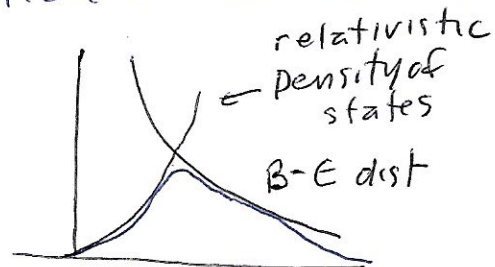 relativistic
Density of
states
B-E dist